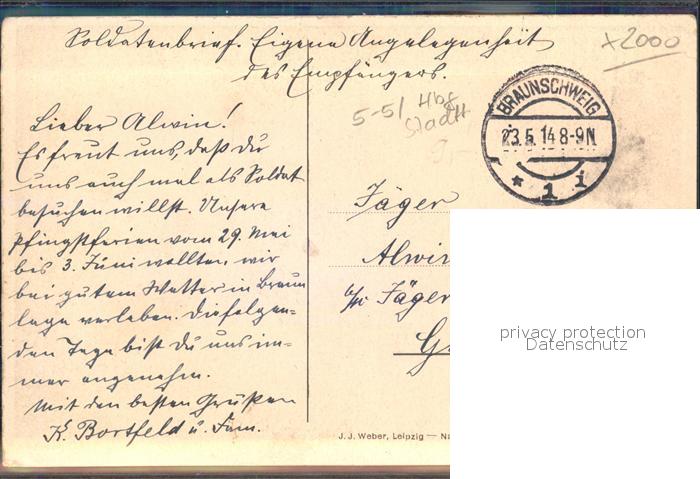 Soldatenbrief. Eigene Angelegenheit
des Empfängers.
x2000
5-51 Hbg
Stadt
BRAUNSCHWEIG
23.5.14 8-9N
* 1 i
Lieber Alwin!
Es freut uns, daß du
uns auch mal als Soldat
besuchen willst. Unsere
Pfingstferien vom 29. Mai
bis 3. Juni wollten wir
bei gutem Wetter in Braun
lage verleben. Die folgen=
den Tage bist Du uns im=
mer angenehm.
Mit den besten Grüßen
K. Bortfeld u. Fam.
Jäger
Alwi
Jäger
G
J. J. Weber, Leipzig — Na
privacy protection
Datenschutz